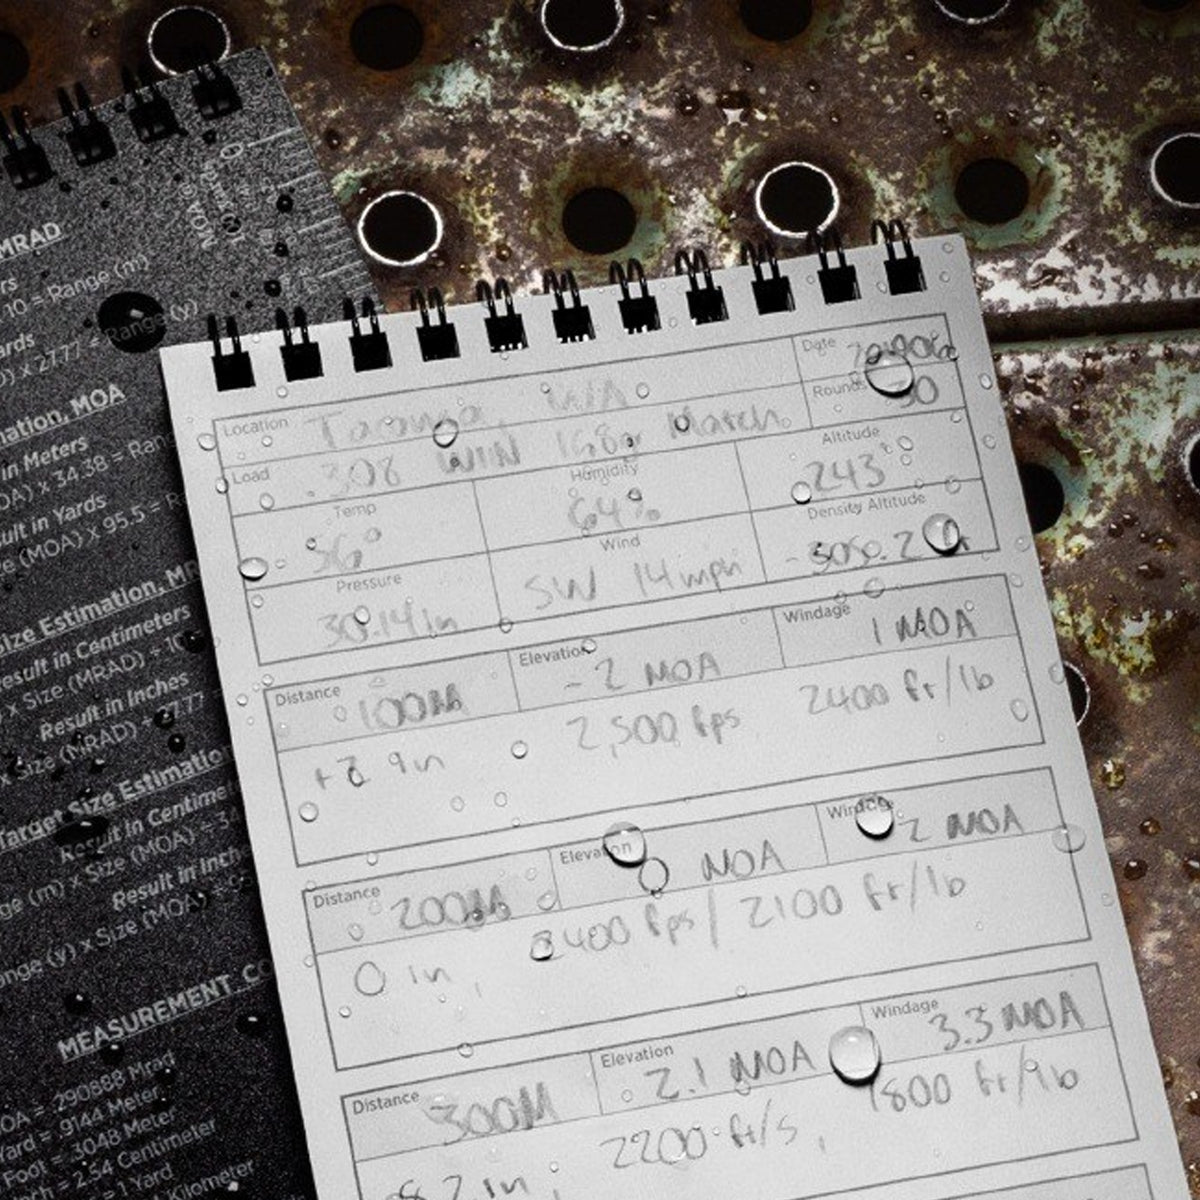 MRAD
10 = Range (m)
x 27.77 = Range (y)
MOA
in Meters
x 34.38 =
Result in Yards
(MOA) x 95.5 =
Size Estimation,
Result in Centimeters
x Size (MRAD) ÷ 10
Result in Inches
x Size (MRAD) ÷ 27.77
Target Size Estimation
Result in
(m) x Size (MOA) ÷
Result in
(y) x Size (MOA)
MEASUREMENT
= .290888 Mrad
Yard = .9144 Meter
Foot = .3048 Meter
= 2.54 Centimeter
= 1 Yard
Kilometer
Date
Location Tacoma, WA
Rounds 30
Load .308 WIN 168g Match
Temp 56°
Humidity 64%
Altitude 243
Pressure 30.14in
Wind SW 14mph
Density Altitude
Distance 100M
Elevation -2 MOA
Windage 1 MOA
9in 2,500 fps 2400 ft/lb
Distance 200M
Elevation 0 MOA
Windage 2 MOA
0 in, 2400 fps / 2100 ft/lb
Distance 300M
Elevation 2.1 MOA
Windage 3.3 MOA
2200 ft/s, 1800 ft/lb